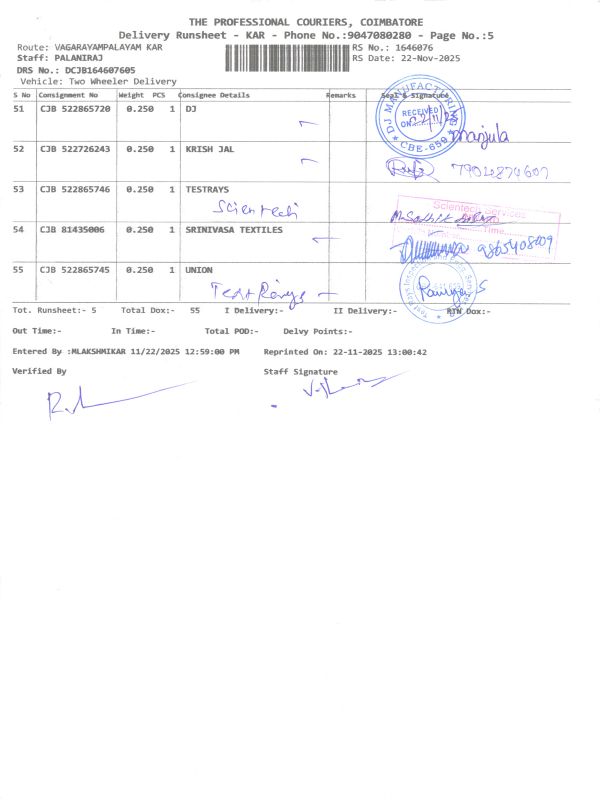 THE PROFESSIONAL COURIERS, COIMBATORE
Delivery Runsheet - KAR - Phone No.:9047080280 - Page No.:5
Route: VAGARAYAMPALAYAM KAR RS No.: 1646076
Staff: PALANIRAJ RS Date: 22-Nov-2025
DRS No.: DCJB164607605
Vehicle: Two Wheeler Delivery
S No Consignment No Weight PCS Consignee Details Remarks Seal & Signature
51 CJB 522865720 0.250 1 DJ
DJ MANUFACTURING
RECEIVED
ON
CBE-659
Manjula
52 CJB 522726243 0.250 1 KRISH JAL
7904874607
53 CJB 522865746 0.250 1 TESTRAYS
Scientech
Scientech Services
54 CJB 81435006 0.250 1 SRINIVASA TEXTILES
Time
9865408009
55 CJB 522865745 0.250 1 UNION
Test Rays
Tot. Runsheet:- 5 Total Dox:- 55 I Delivery:- II Delivery:- RTN Dox:-
Out Time:- In Time:- Total POD:- Delvy Points:-
Entered By :MLAKSHMIKAR 11/22/2025 12:59:00 PM Reprinted On: 22-11-2025 13:00:42
Verified By Staff Signature